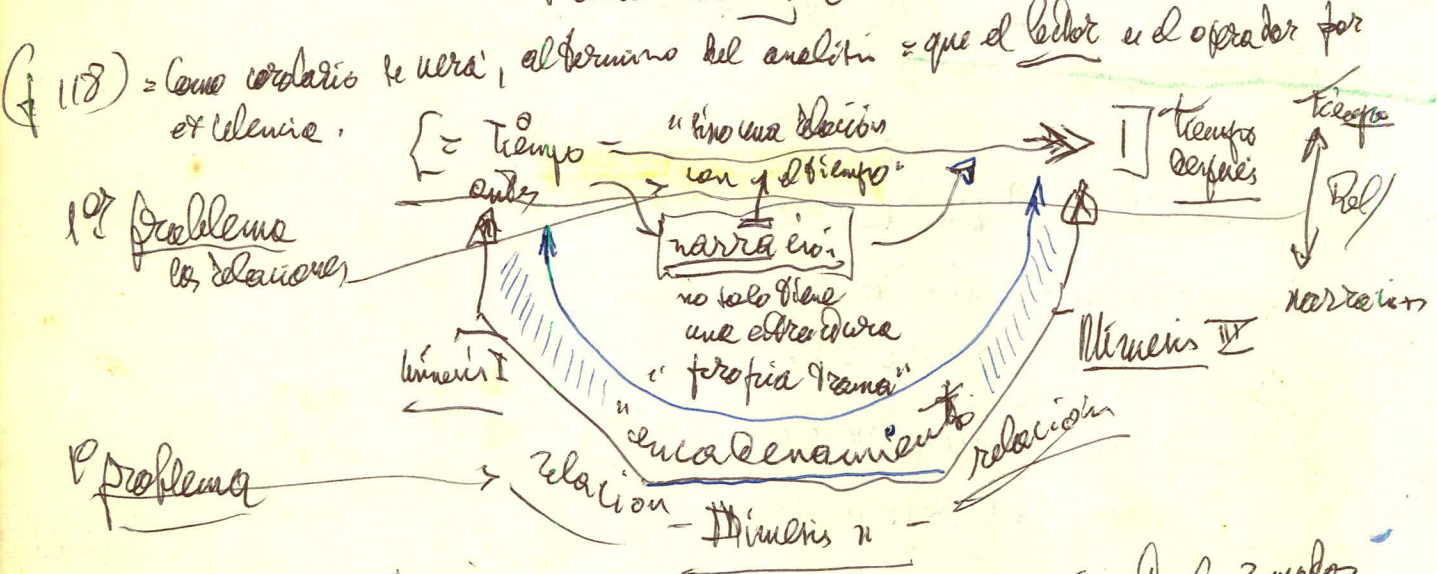 (p 118) = Como corolario se verá, al termino del analisis = que el lector es el operador por
excelencia.
{= Tiempo
antes
"sino una relación
con el tiempo"
] tiempo
después
Tiempo
Rel/
narración
1er problema
las relaciones
narración
no solo tiene
una estructura
"propia trama"
Mimesis I
Mimesis III
"encadenamiento
1º problema
relación
relación
- Mimesis II -